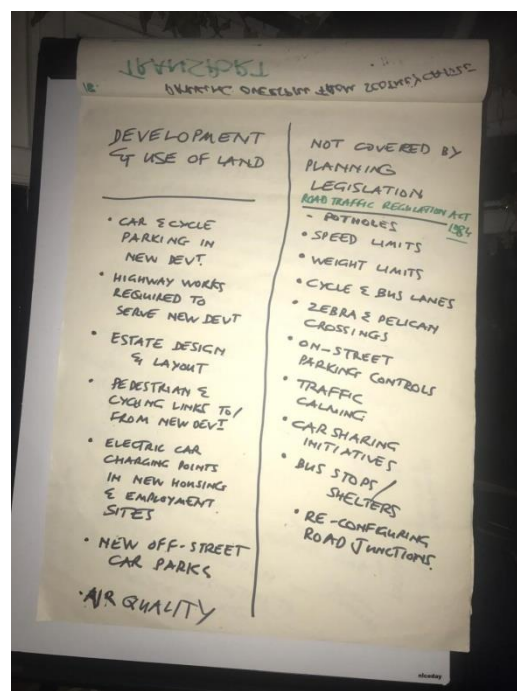 TRANSPORT
18.
DEVELOPMENT
& USE OF LAND
• CAR & CYCLE
PARKING IN
NEW DEVT.
• HIGHWAY WORKS
REQUIRED TO
SERVE NEW DEVT
• ESTATE DESIGN
& LAYOUT
• PEDESTRIAN &
CYCLING LINKS TO/
FROM NEW DEVT
• ELECTRIC CAR
CHARGING POINTS
IN NEW HOUSING
& EMPLOYMENT
SITES
• NEW OFF-STREET
CAR PARKS
• AIR QUALITY
NOT COVERED BY
PLANNING
LEGISLATION
ROAD TRAFFIC REGULATION ACT
1984
- POTHOLES
• SPEED LIMITS
• WEIGHT LIMITS
• CYCLE & BUS LANES
• ZEBRA & PELICAN
CROSSINGS
• ON-STREET
PARKING CONTROLS
• TRAFFIC
CALMING
• CAR SHARING
INITIATIVES
• BUS STOPS/
SHELTERS
• RE-CONFIGURING
ROAD JUNCTIONS.